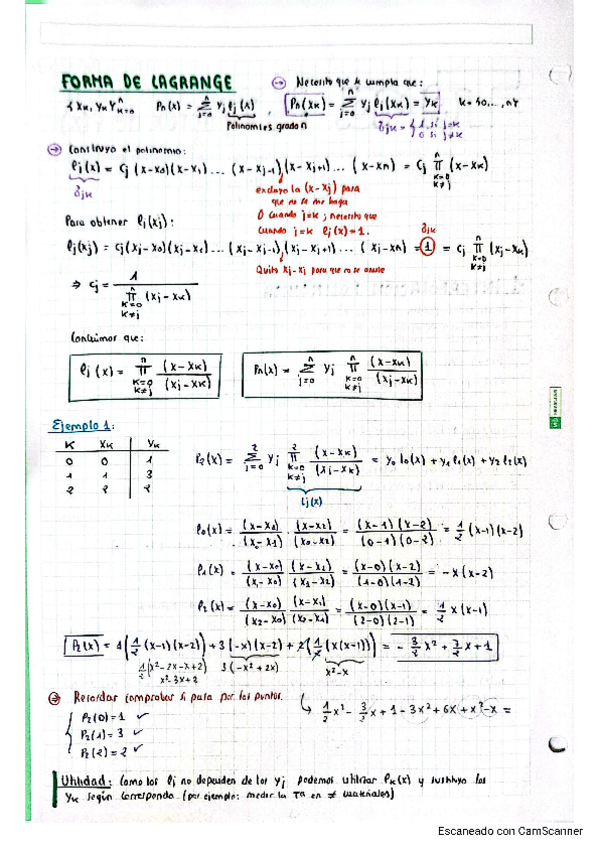 FORMA DE LAGRANGE
→ Necesito que se cumpla que:
{xk, yk}ⁿk=0 Pn(x) = Σⁿj=0 yj ℓj(x), Pn(xk) = Σⁿj=0 yj ℓj(xk) = yk, k={0,...,n}
Polinomios grado n
δjk = {1 si j=k
0 si j≠k
→ Construyo el polinomio:
ℓj(x) = cj (x-x0)(x-x1) ... (x-xj-1)(x-xj+1)... (x-xn) = cj Πⁿk=0 k≠j (x-xk)
δjk
excluyo la (x-xj) para
que no se me haga
0 cuando j=k; necesito que
cuando j=k ℓj(x)=1.
Para obtener ℓj(xj):
δjk
ℓj(xj) = cj(xj-x0)(xj-x1) ... (xj-xj-1)(xj-xj+1) ... (xj-xn) = 1 = cj Πⁿk=0 k≠j (xj-xk)
Quito xj-xj para que no se anule
⇒ cj = 1 / Πⁿk=0 k≠j (xj-xk)
Concluimos que:
ℓj(x) = Πⁿk=0 k≠j (x-xk)/(xj-xk)
Pn(x) = Σⁿj=0 yj Πⁿk=0 k≠j (x-xk)/(xj-xk)
Ejemplo 1:
K xk yk
0 0 1
1 1 3
2 2 2
P2(x) = Σ²j=0 yj Π²k=0 k≠j (x-xk)/(xj-xk) = y0 ℓ0(x) + y1 ℓ1(x) + y2 ℓ2(x)
Lj(x)
ℓ0(x) = (x-x1)/(x0-x1) · (x-x2)/(x0-x2) = (x-1)(x-2)/(0-1)(0-2) = 1/2 (x-1)(x-2)
ℓ1(x) = (x-x0)/(x1-x0) · (x-x2)/(x1-x2) = (x-0)(x-2)/(1-0)(1-2) = -x(x-2)
ℓ2(x) = (x-x0)/(x2-x0) · (x-x1)/(x2-x1) = (x-0)(x-1)/(2-0)(2-1) = 1/2 x(x-1)
P2(x) = 1(1/2 (x-1)(x-2)) + 3(-x)(x-2) + 2(1/2 (x(x-1))) = -3/2 x² + 7/2 x + 1
1/2(x²-2x-x+2) 3(-x²+2x) x²-x
x²-3x+2
→ Recordar comprobar si pasa por los puntos.
1/2 x² - 3/2 x + 1 - 3x² + 6x + x² - x =
P2(0) = 1 ✓
P2(1) = 3 ✓
P2(2) = 2 ✓
Utilidad: Como los ℓj no dependen de los yj podemos utilizar ℓk(x) y sustituyo los
yk según corresponda (por ejemplo: medir la Tª en ≠ materiales)
Escaneado con CamScanner